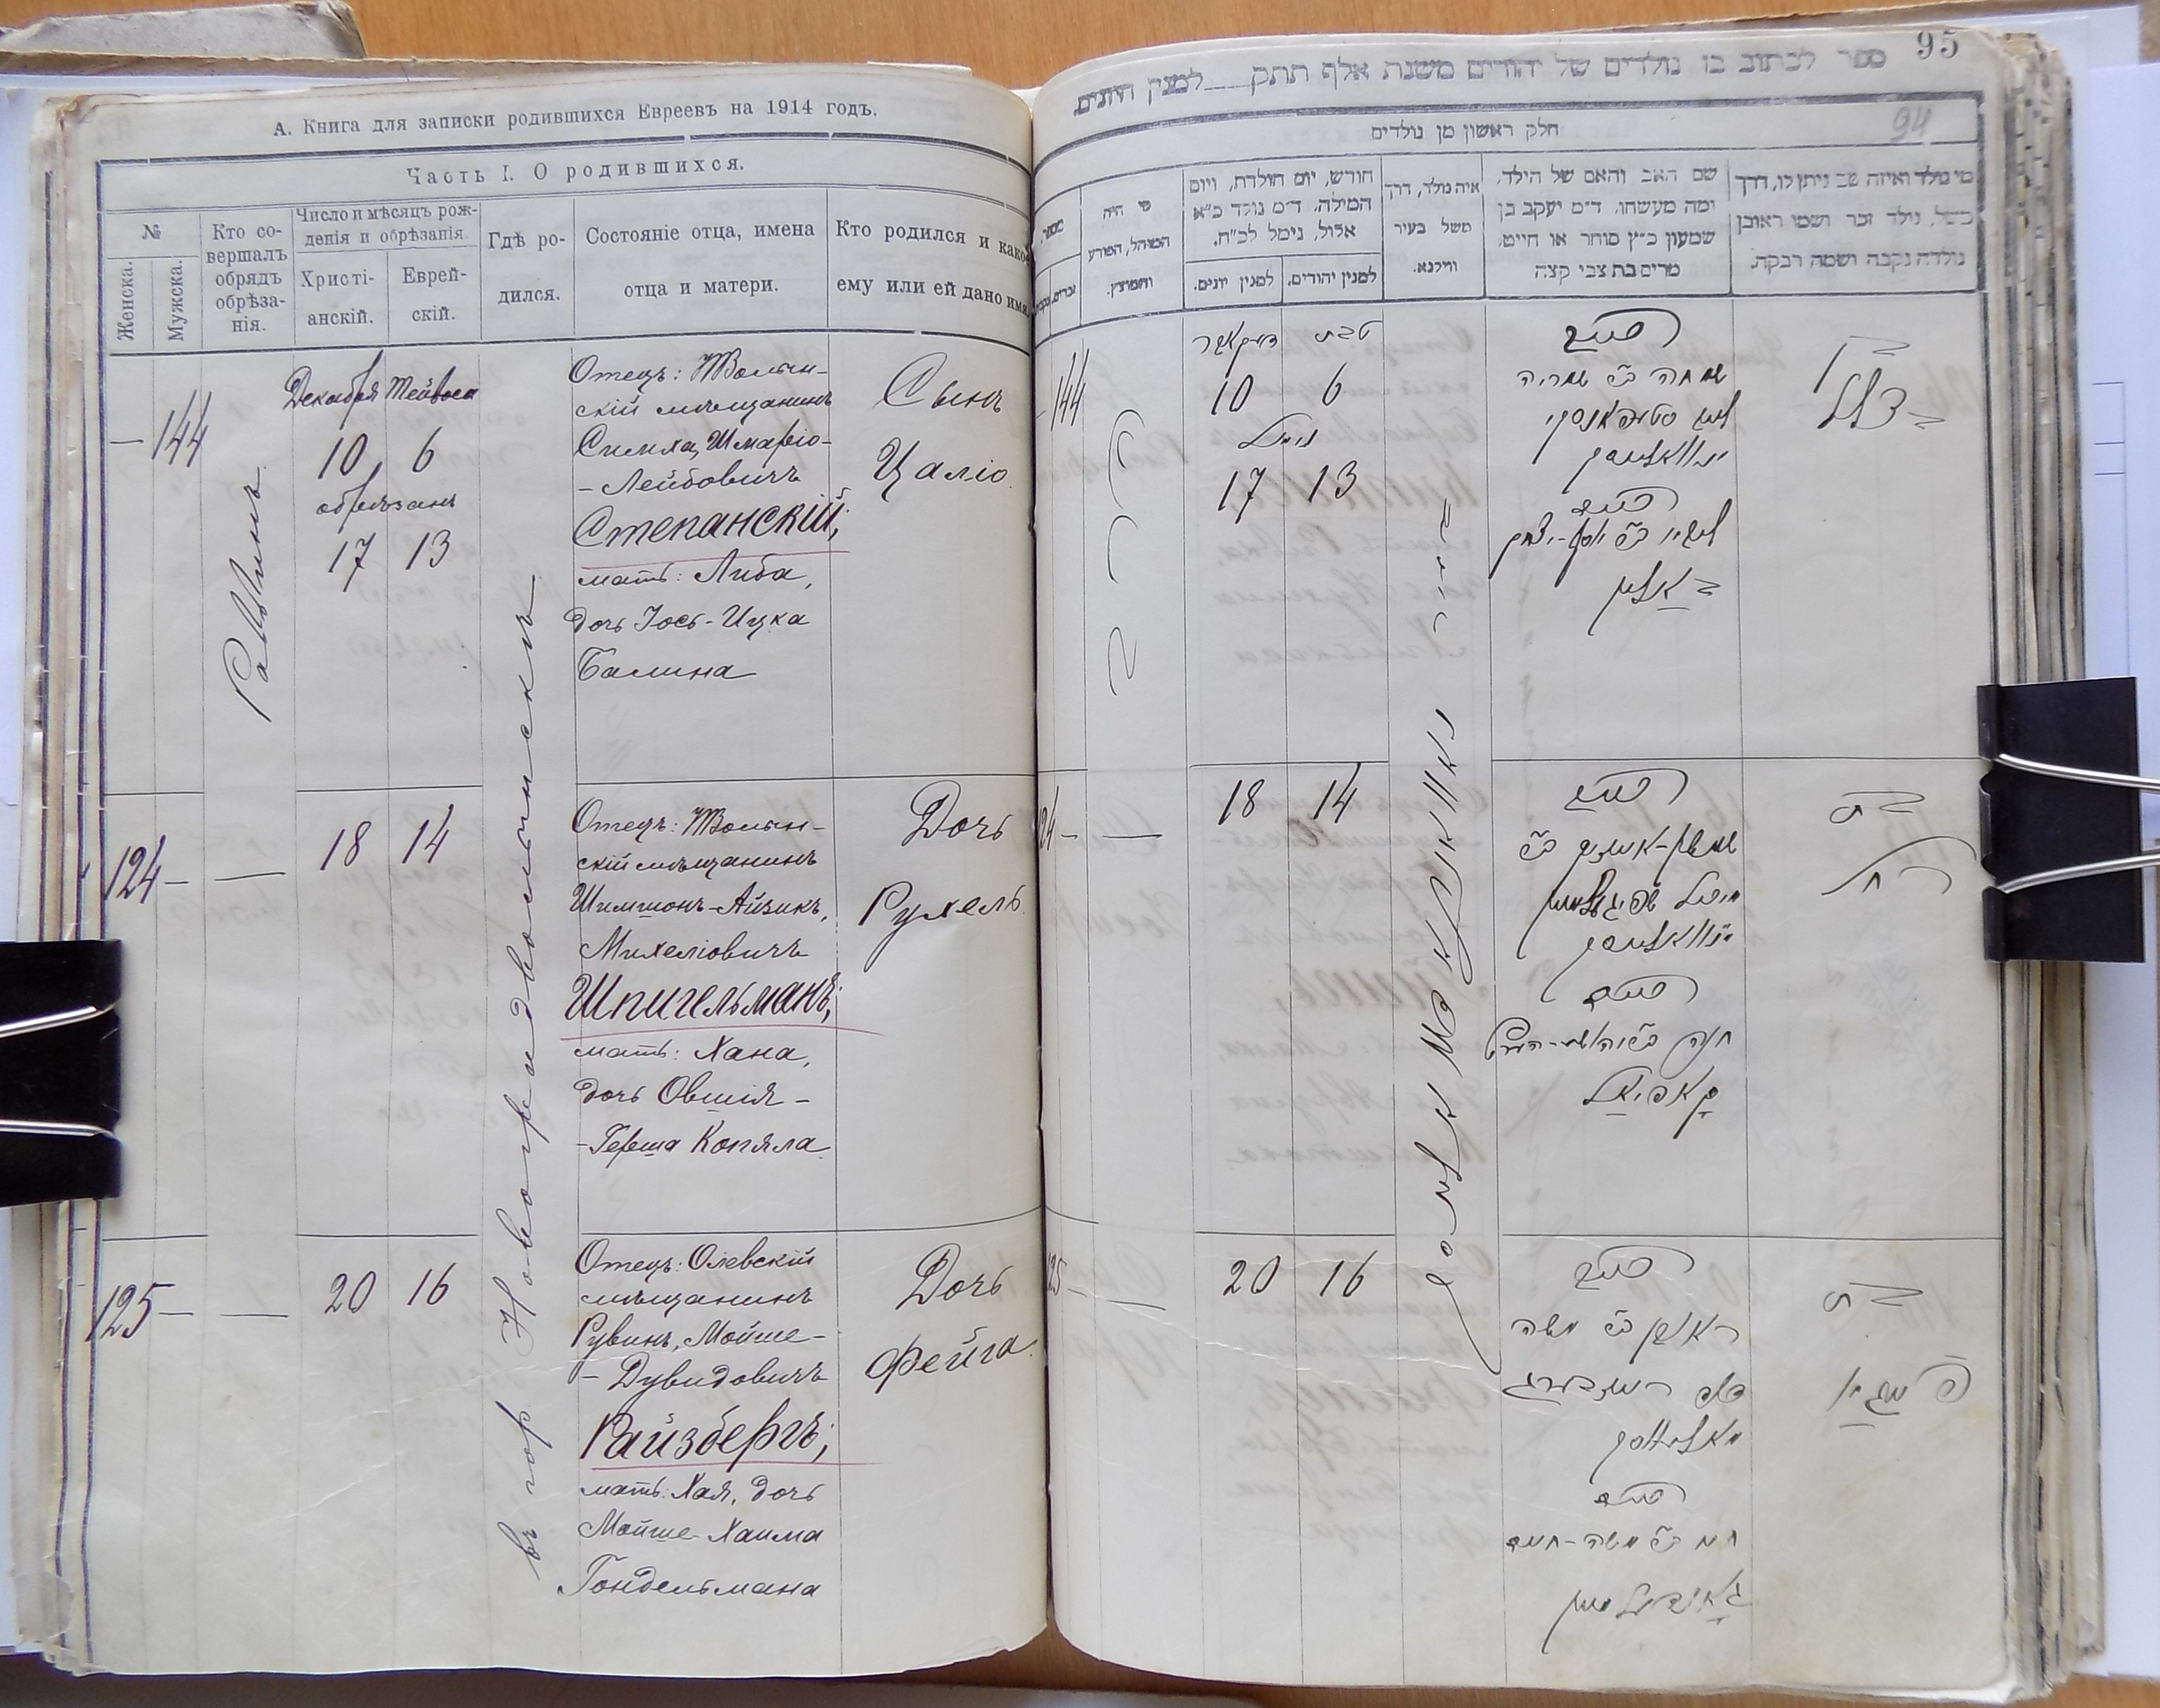 А. Книга для записки родившихся Евреевъ на 1914 годъ.
Часть I. О родившихся.
№
Женска.
Мужска.
Кто со-
вершалъ
обрядъ
обрѣза-
нія.
Число и мѣсяцъ рож-
денія и обрѣзанія.
Христі-
анскій.
Еврей-
скій.
Гдѣ ро-
дился.
Состояніе отца, имена
отца и матери.
Кто родился и какое
ему или ей дано имя.
—144
Раввинъ
Декабря Тейвеса
10 6
обрѣзанъ
17 13
въ гор. Новоградволынскѣ
Отецъ: НВолын-
скій мѣщанинъ
Симха, Шмаріо-
-Лейбовичъ
Степанскій;
мать: Либа,
дочь Іось-Ицка
Балина
Сынъ
Цаліо.
124— —
18 14
Отецъ: НВолын-
скій мѣщанинъ
Шимшонъ-Айзикъ,
Михеліовичъ
Шпигельманъ;
мать: Хана,
дочь Овшія-
-Герша Копяла.
Дочь
Рухель.
125— —
20 16
Отецъ: Олевскій
мѣщанинъ
Рувинъ, Мойше-
-Дувидовичъ
Райзбергъ;
мать: Хая, дочь
Мойше-Хаима
Гондельмана
Дочь
Фейга.
95
ספר לכתוב בו נולדים של יהודים משנת אלף תתק___למנין היונים.
94
חלק ראשון מן נולדים
מי נולד ואיזה שם ניתן לו, דרך
משל, נולד זכר ושמו ראובן
נולדה נקבה ושמה רבקה.
שם האב והאם של הילד,
ומה מעשהו. ד״מ יעקב בן
שמעון כ״ץ סוחר או חייט,
מרים בת צבי קצה
איה נולד, דרך
משל בעיר
ווילנא.
חודש, יום הולדת, ויום
המילה. ד״מ נולד כ״א
אלול, נימל לכ״ח.
למנין יהודים.
למנין יונים.
מי היה
המוהל, הפורע
והמוצץ.
מספר.
144
טבת
דעקאבר
10 6
נימול
17 13
האב
שמחה ב״ר שמריה
ליב סטעפאנסקי
האם
באלין
בן
124—
—
18 14
האב
שמשון-אייזיק ב״ר
מיכל שפיגעלמאן
האם
חנה
קאפיאל
בת
רחל
125—
—
20 16
האב
ראובן ב״ר משה
דוד רייזבערג
האם
חיה ב״ר משה-חיים
גאנדעלמאן
בת
פייגא